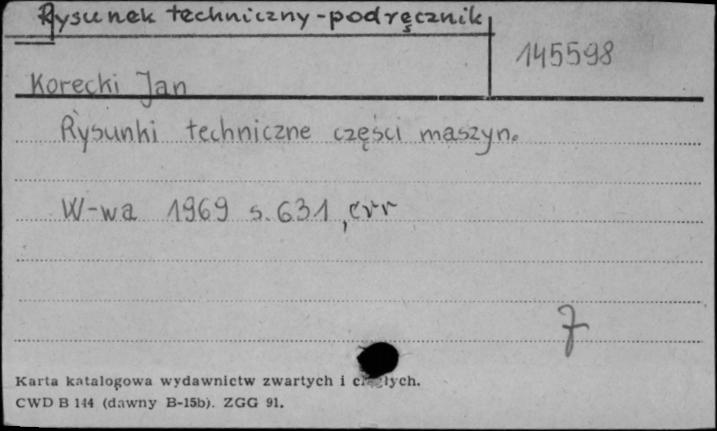 Rysunek techniczny-podręcznik
145598
Korecki Jan
Rysunki techniczne części maszyn.
W-wa 1969 s. 631,
7
Karta katalogowa wydawnictw zwartych i
CWD B 144 (dawny B-15b). ZGG 91.